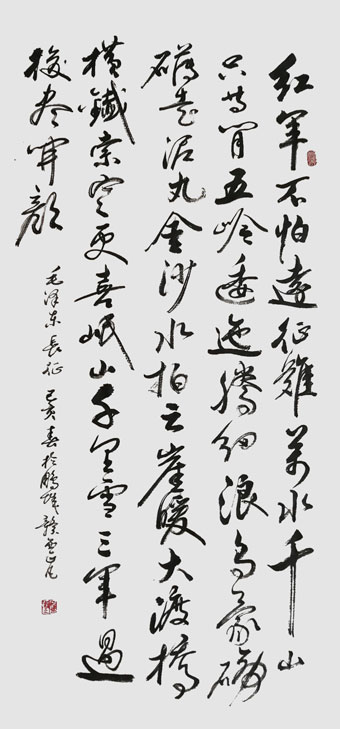 红军不怕遠征難萬水千山
只等闲五岭逶迤腾细浪乌蒙磅
礴走泥丸金沙水拍云崖暖大渡橋
横鐵索寒更喜岷山千里雪三军過
後尽开颜
毛泽东長征 己亥春於鹏城